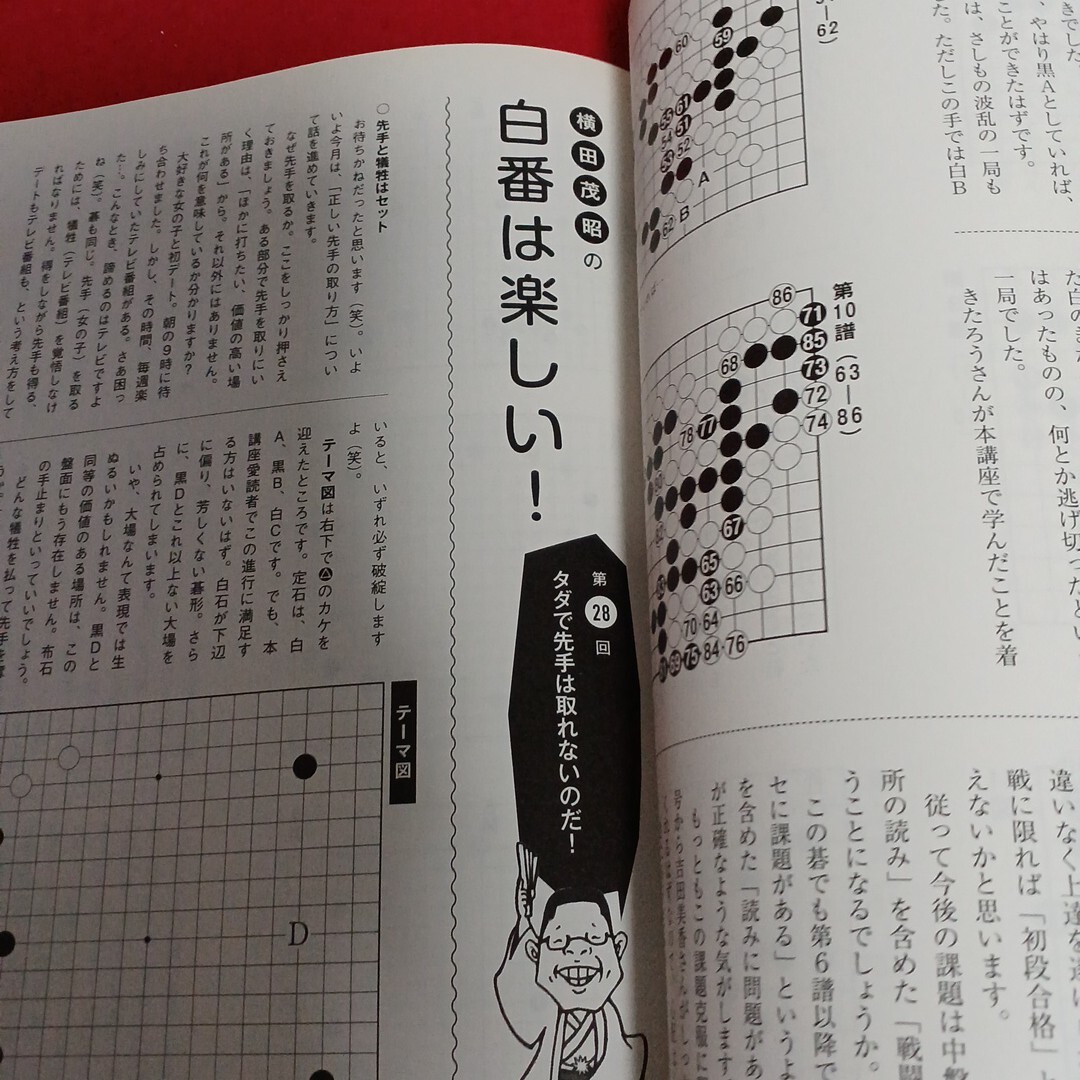 62）
きでした。
、やはり黒Aとしていれば、
ことができたはずです。
は、さしもの波乱の一局も
た。ただしこの手では白B
60
59
61
55
51
54
52
53
A
B
62
第10譜（63—86）
86
71
85
73
72
74
68
77
78
67
65
63
66
64
70
69
75
84
76
はあったものの、何とか逃げ切ったとい
一局でした。
きたろうさんが本講座で学んだことを着
違いなく上達を遂げ
戦に限れば「初段合格」と
えないかと思います。
従って今後の課題は中盤
所の読み」を含めた「戦闘
うことになるでしょうか。
この碁でも第６譜以降で
セに課題がある」というよ
を含めた「読みに問題があ
が正確なような気がします
もっともこの課題克服に
横田茂昭の
白番は楽しい！
第28回
タダで先手は取れないのだ！
○先手と犠牲はセット
お待ちかねだったと思います（笑）。いよ
いよ今月は、「正しい先手の取り方」につい
て話を進めていきます。
なぜ先手を取るか。ここをしっかり押さえ
ておきましょう。ある部分で先手を取りにい
く理由は、「ほかに打ちたい、価値の高い場
所がある」から。それ以外にはありません。
これが何を意味しているか分かりますか？
大好きな女の子と初デート。朝の９時に待
ち合わせました。しかし、その時間、毎週楽
しみにしていたテレビ番組がある。さあ困っ
た…。こんなとき、諦めるのはテレビですよ
ね（笑）。碁も同じ。先手（女の子）を取る
ためには、犠牲（テレビ番組）を覚悟しなけ
ればなりません。得をしながら先手も得る、
デートもテレビ番組も、という考え方をして
いると、いずれ必ず破綻します
よ（笑）。
テーマ図は右下で△のカケを
迎えたところです。定石は、白
A、黒B、白Cです。でも、本
講座愛読者でこの進行に満足す
る方はいないはず。白石が下辺
に偏り、芳しくない碁形。さら
に、黒Dとこれ以上ない大場を
占められてしまいます。
いや、大場なんて表現では生
ぬるいかもしれません。黒Dと
同等の価値のある場所は、この
盤面にもう存在しません。布石
の手止まりといっていいでしょう。
どんな犠牲を払って先手を奪
テーマ図
D